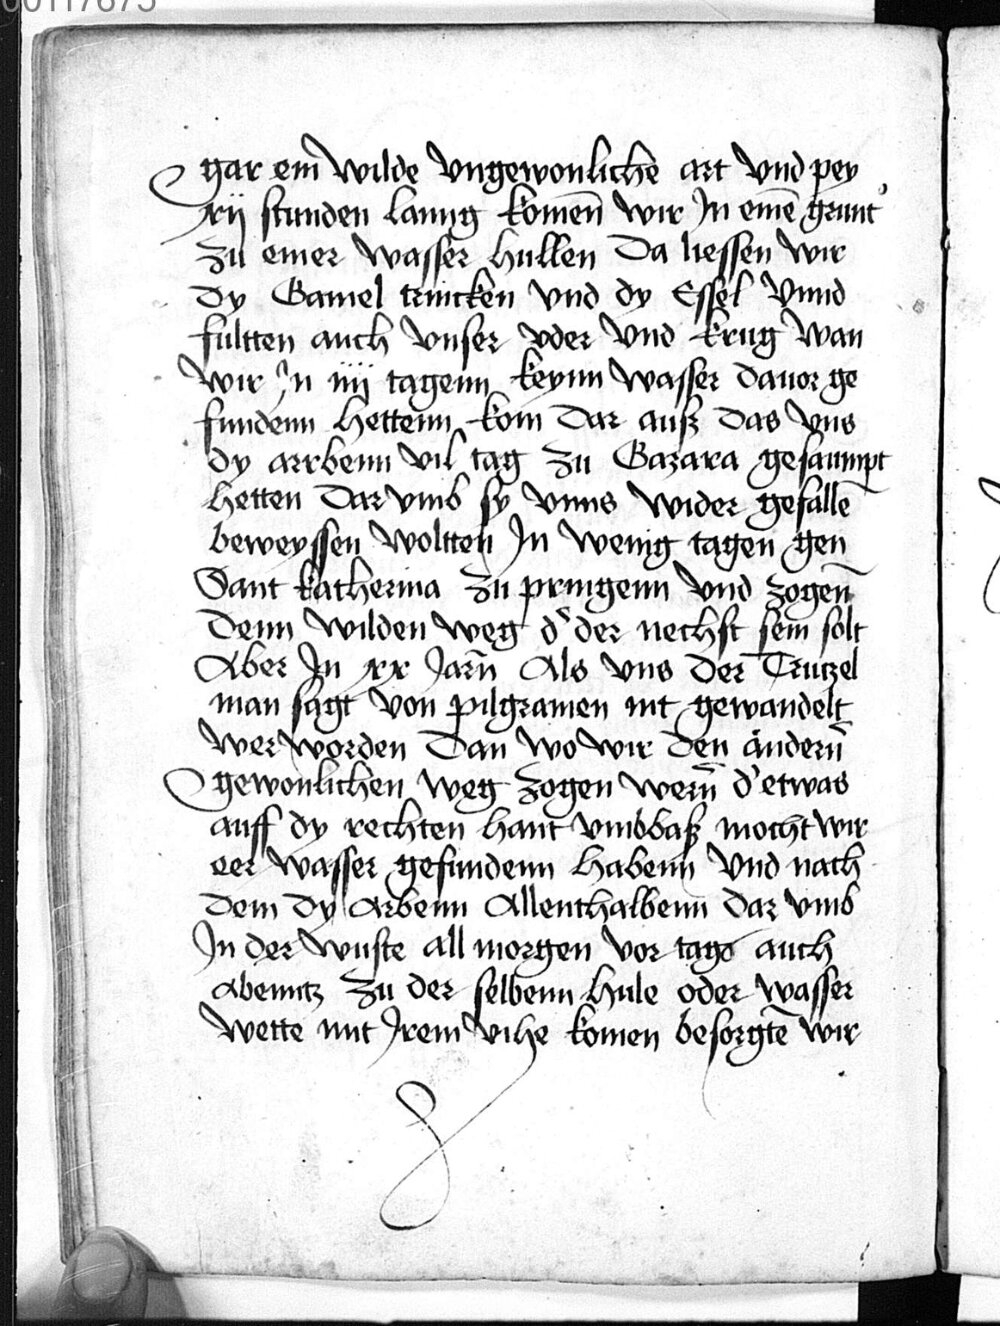 00117675
gar ein wilde vngewonliche art vnd pey
xij stunden lanng komen̄ wir Jn einē grunt
zu einer wasser hullen Da liessen wir
dy Gamel trincken vnd dy Essel Vnnd
fultten auch vnser oder vnd krug wan
wir Jn iiij tagenn keynn wasser dauor ge
fundenn hettenn kom dar auß das vns
dy arrbenn vil tag zu Gazara gesaumpt
hetten dar vmb sy vnns wider gefallē
beweyssen woltten Jn wenig tagen gen
Sant katherina zu pringenn vnd zogen̄
denn wilden weg d' der nechst sein solt
Aber Jn xx Jarn̄ Als vns der Trutzel
man sagt von pilgramen nit gewandelt
wer worden Dan wo wir den ändern̄
gewonlichen weg zogen wern̄ d' etwas
auff dy rechten hant vmbbaß mocht wir
eer wasser gefundenn habenn Vnd nach
dem dy Arbenn Allenthalbenn dar vmb
Jn der wuste all morgen vor tags auch
abenntz zu der selbenn hule oder wasser
wette mit Jrem vihe komen besorgtē wir